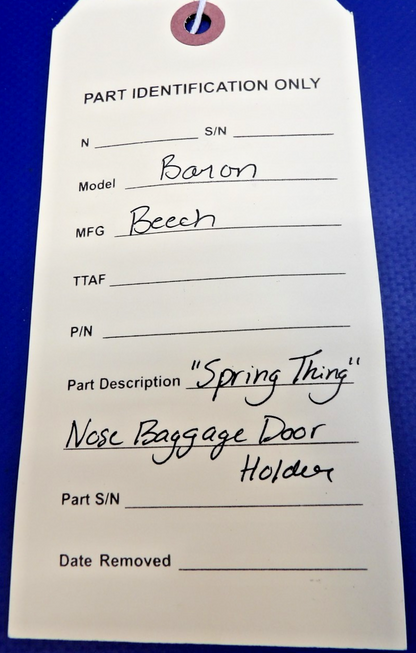 PART IDENTIFICATION ONLY
N S/N
Model Baron
MFG Beech
TTAF
P/N
Part Description "Spring Thing"
Nose Baggage Door
Holder
Part S/N
Date Removed